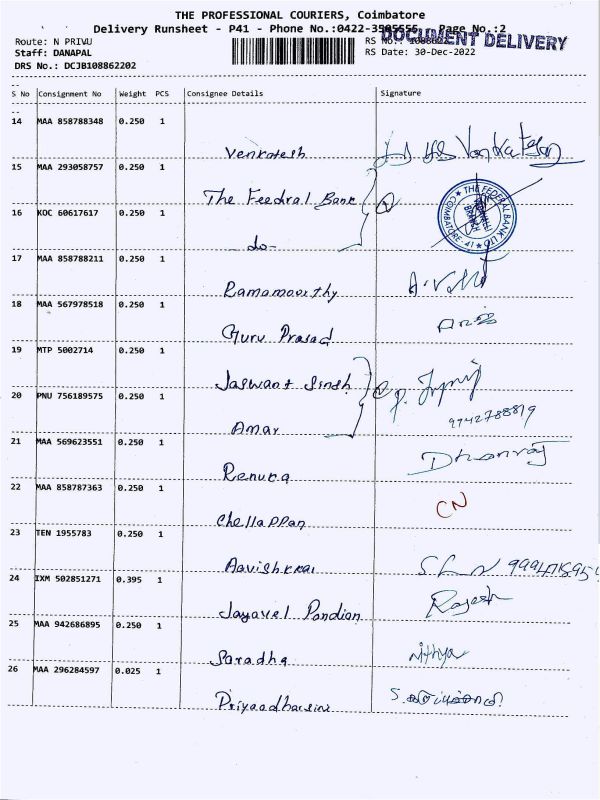 THE PROFESSIONAL COURIERS, Coimbatore
Delivery Runsheet - P41 - Phone No.:0422-3505555 Page No.:2
DOCUMENT DELIVERY
Route: N PRIVU
RS No.:
Staff: DANAPAL
RS Date: 30-Dec-2022
DRS No.: DCJB108862202
S No Consignment No Weight PCS Consignee Details Signature
14 MAA 858788348 0.250 1
Venkatesh
15 MAA 293058757 0.250 1
The Feedral Bank
THE FEDERAL BANK LTD COIMBATORE - 41
16 KOC 60617617 0.250 1
do-
17 MAA 858788211 0.250 1
Ramamoorthy
18 MAA 567978518 0.250 1
Guru Prasad
19 MTP 5002714 0.250 1
Jaswant Singh
20 PNU 756189575 0.250 1
9742788819
Amar
21 MAA 569623551 0.250 1
Dhanraj
Renuka
22 MAA 858787363 0.250 1
CN
Chellappan
23 TEN 1955783 0.250 1
Aavishkkar
24 IXM 502851271 0.395 1
Rajesh
Jayavel Pandian
25 MAA 942686895 0.250 1
Saradha
Nithya
26 MAA 296284597 0.025 1
Priyaadharsini